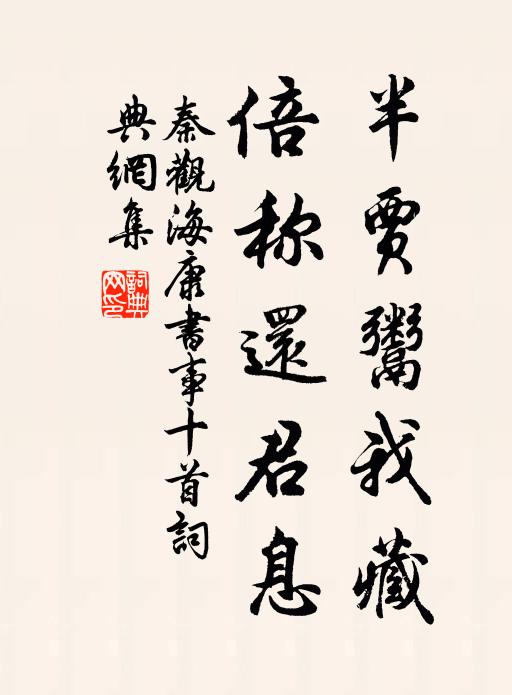 半賈鬻我藏
倍称還君息
秦觀海康書事十首詞
典網集
詞典網印